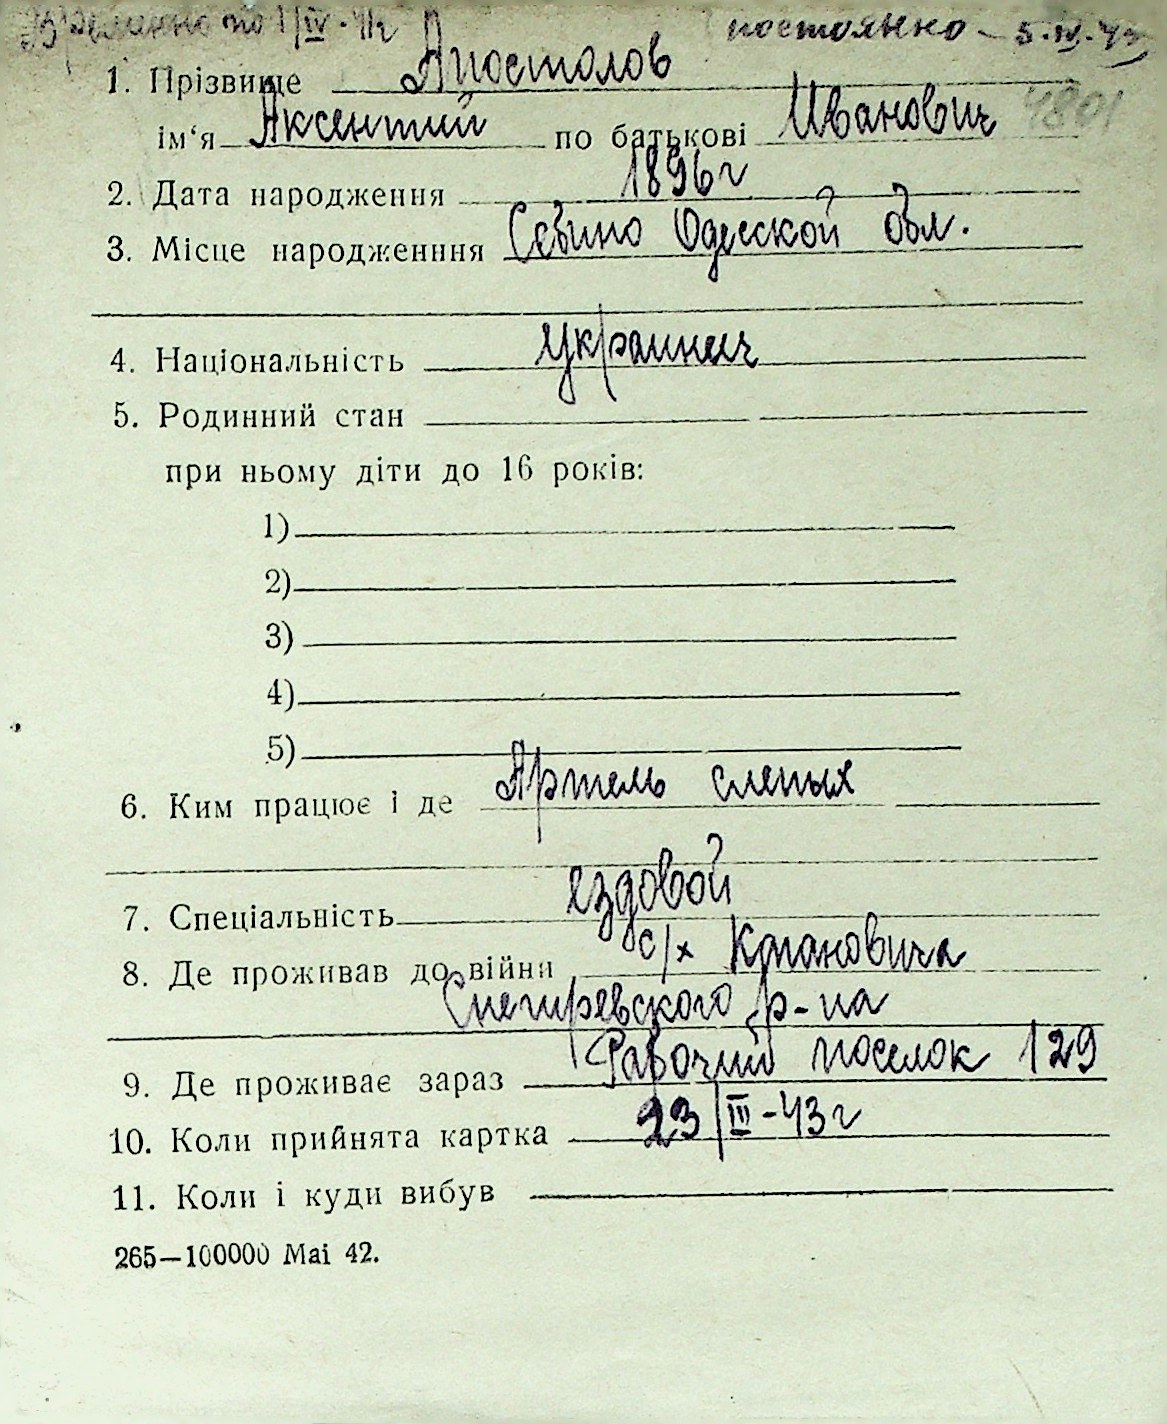 Временно по 1/IV-43г постоянно - 5.IV.43
1. Прізвище Апостолов
ім‘я Аксентий по батькові Иванович 4801
2. Дата народження 1896г
3. Місце народженння Севино Одесской обл.
4. Національність украинец
5. Родинний стан
при ньому діти до 16 років:
1)
2)
3)
4)
5)
6. Ким працює і де Артель слепых
7. Спеціальність ездовой
8. Де проживав до війни с/х
Снегиревского р-на
9. Де проживає зараз Рабочий поселок 129
10. Коли прийнята картка 23/III-43г
11. Коли і куди вибув
265—100000 Mai 42.